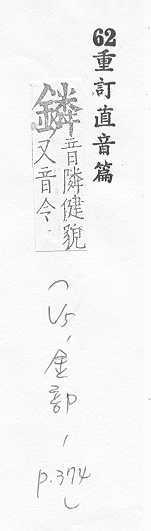 62重訂直音篇
鏻音隣健貌
又音令
(V5,金部,p.374)